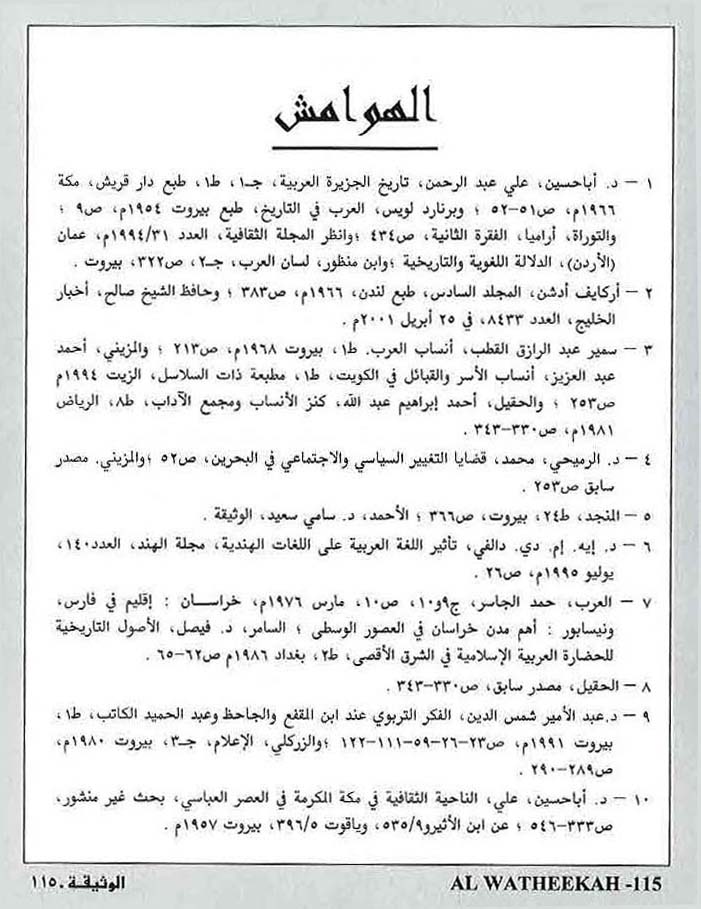 الهوامش
١ – د. أباحسين، علي عبد الرحمن، تاريخ الجزيرة العربية، جـ١، ط١، طبع دار قريش، مكة
١٩٦٦م، ص٥١–٥٢ ؛ وبرنارد لويس، العرب في التاريخ، طبع بيروت ١٩٥٤م، ص٩ ؛
والتوراة، أراميا، الفقرة الثانية، ص٤٣٤ ؛وانظر المجلة الثقافية، العدد ١٩٩٤/٣١م، عمان
(الأردن)، الدلالة اللغوية والتاريخية ؛وابن منظور، لسان العرب، جـ٢، ص٣٢٢، بيروت .
٢ – أركايف أدشن، المجلد السادس، طبع لندن، ١٩٦٦م، ص٣٨٣ ؛ وحافظ الشيخ صالح، أخبار
الخليج، العدد ٨٤٣٣، في ٢٥ أبريل ٢٠٠١م .
٣ – سمير عبد الرازق القطب، أنساب العرب. ط١، بيروت ١٩٦٨م، ص٢١٣ ؛ والمزيني، أحمد
عبد العزيز، أنساب الأسر والقبائل في الكويت، ط١، مطبعة ذات السلاسل، الزيت ١٩٩٤م
ص٢٥٣ ؛ والحقيل، أحمد إبراهيم عبد الله، كنز الأنساب ومجمع الآداب، ط٨، الرياض
١٩٨١م، ص٣٣٠–٣٤٣ .
٤ – د. الرميحي، محمد، قضايا التغيير السياسي والاجتماعي في البحرين، ص٥٢ ؛والمزيني. مصدر
سابق ص٢٥٣ .
٥ – المنجد، ط٢٤، بيروت، ص٣٦٦ ؛ الأحمد، د. سامي سعيد، الوثيقة .
٦ – د. إيه. إم. دي. دالفي، تأثير اللغة العربية على اللغات الهندية، مجلة الهند، العدد١٤٠،
يوليو ١٩٩٥م، ص٢٦ .
٧ – العرب، حمد الجاسر، ج٩و١٠، ص١٠، مارس ١٩٧٦م، خراسـان : إقليم في فارس،
ونيسابور : أهم مدن خراسان في العصور الوسطى ؛ السامر، د. فيصل، الأصول التاريخية
للحضارة العربية الإسلامية في الشرق الأقصى، ط٢، بغداد ١٩٨٦م ص٦٢–٦٥ .
٨ – الحقيل، مصدر سابق، ص٣٣٠–٣٤٣ .
٩ – د.عبد الأمير شمس الدين، الفكر التربوي عند ابن المقفع والجاحظ وعبد الحميد الكاتب، ط١،
بيروت ١٩٩١م، ص٢٣–٢٦–٥٩–١١١–١٢٢ ؛والزركلي، الإعلام، جـ٣، بيروت ١٩٨٠م،
ص٢٨٩–٢٩٠ .
١٠ – د. أباحسين، علي، الناحية الثقافية في مكة المكرمة في العصر العباسي، بحث غير منشور،
ص٣٣٣–٥٤٦ ؛ عن ابن الأثيرو٥٣٥/٩، وياقوت ٣٩٦/٥، بيروت ١٩٥٧م .
الوثيقـة .١١٥
AL WATHEEKAH -115